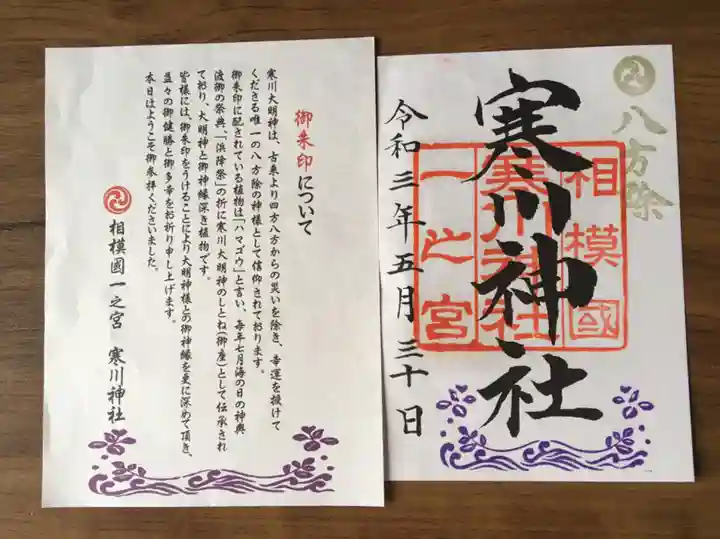 御朱印について
寒川大明神は、古来より四方八方からの災いを除き、幸運を授けて
くださる唯一の八方除の神様として信仰されております。
御朱印に配されている植物は「ハマゴウ」と言い、毎年七月海の日の神輿
渡御の祭典、「浜降祭」の折に寒川大明神のしとね(御座)として伝承され
ており、大明神と御神縁深き植物です。
皆様には、御朱印をうけることにより大明神様との御神縁を更に深めて頂き、
益々の御健勝と御多幸をお祈り申し上げます。
本日はようこそ御参拝くださいました。
相模國一之宮 寒川神社
八方除
相模國
寒川神社
一之宮
寒川神社
令和三年五月三十日